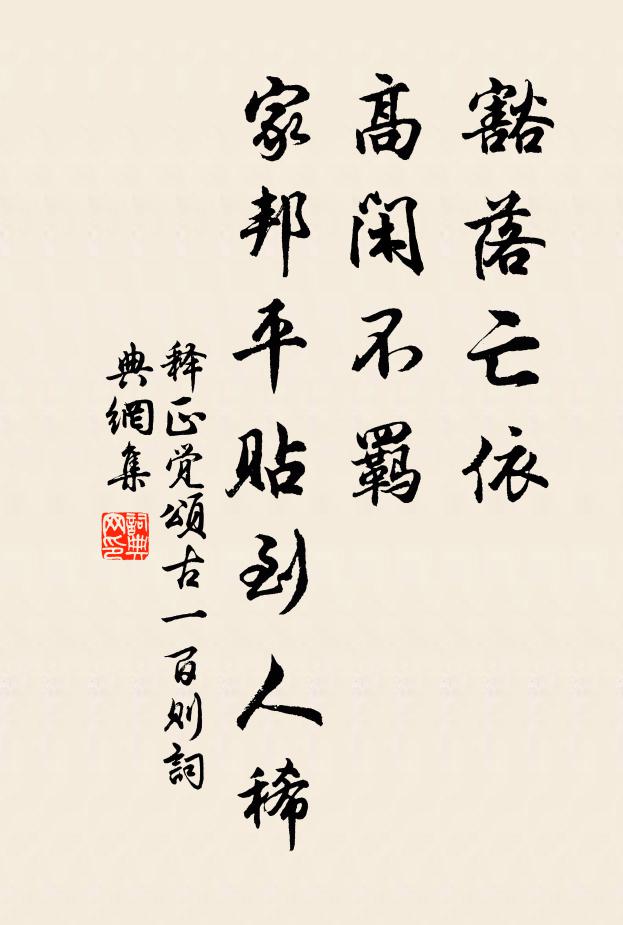 豁落亡依
高閑不羈
家邦平貼到人稀
释正觉頌古一百则詞
典網集
詞典网印